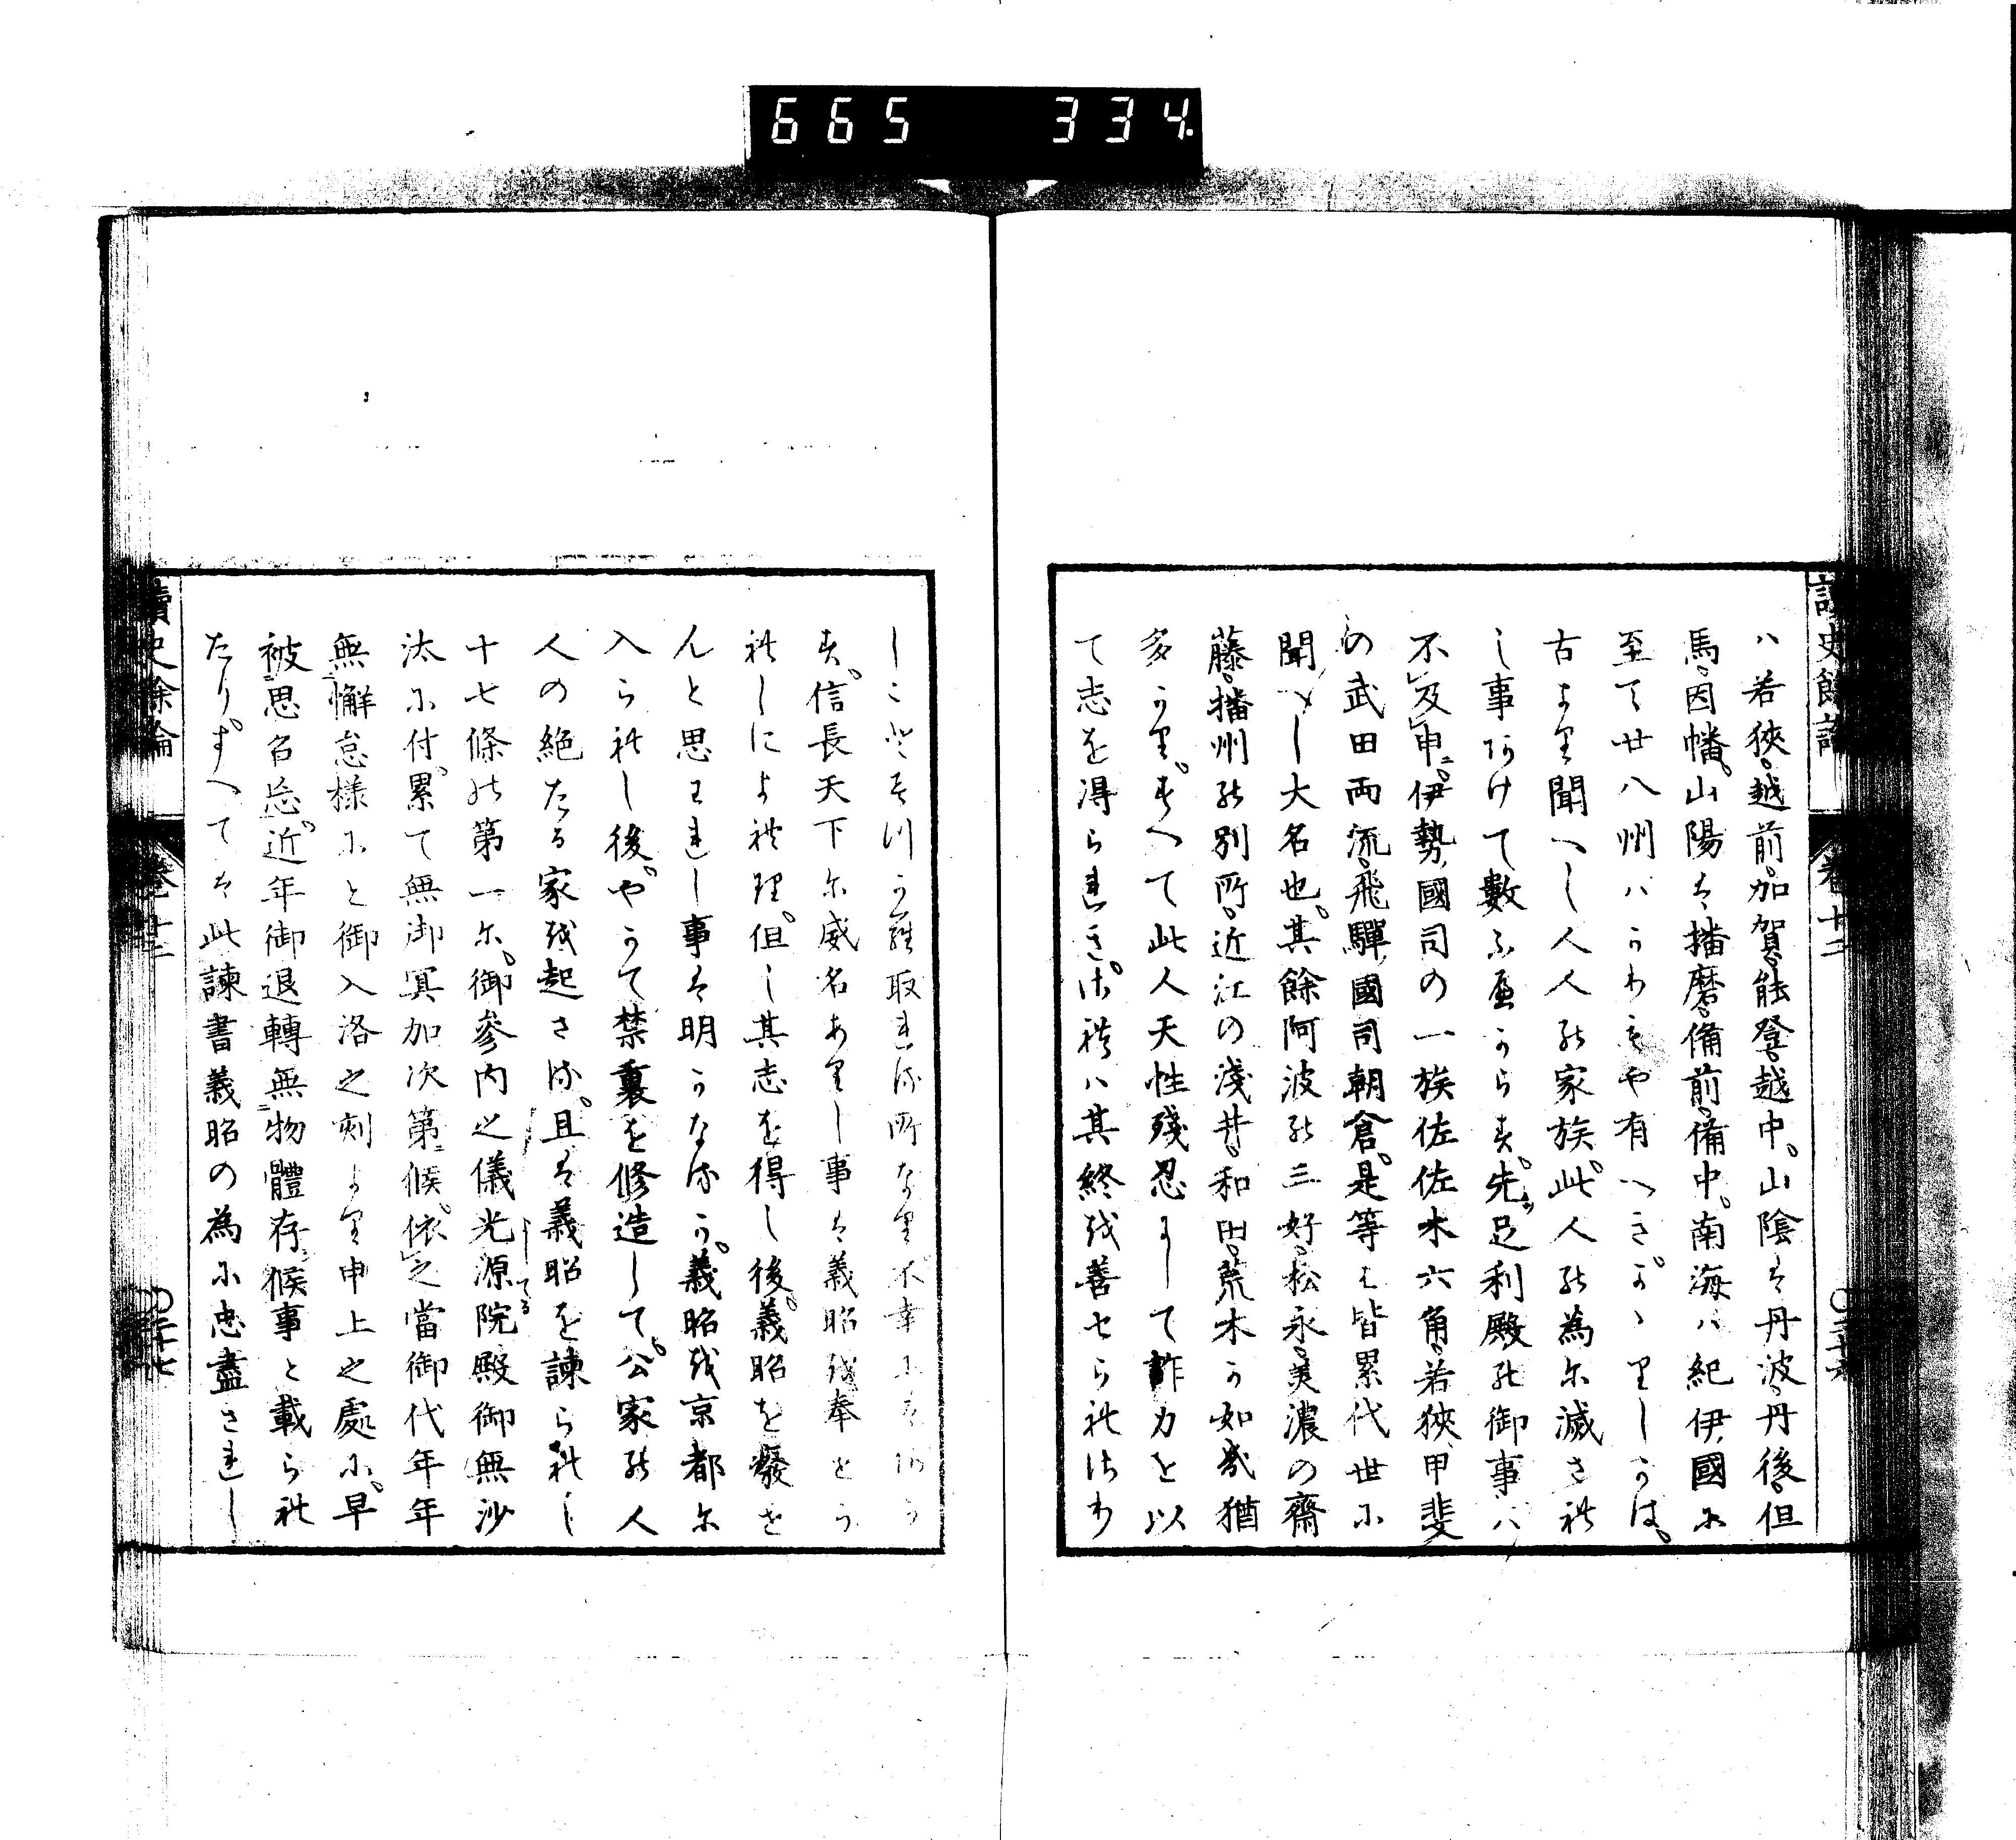 665 334
讀史餘論 卷十二 〇二十六
ハ若狹。越前。加賀。能登。越中。山陰は丹波。丹後。但
馬。因幡。山陽は播磨。備前。備中。南海ハ紀伊國に
至て廿八州ハかりもや有へき。かゝりしかは。
古より聞へし人人の家族。此人の為に滅され
し事はけて數ふ可からす。先足利殿の御事ハ
不及申。伊勢國司の一族佐佐木六角。若狹甲斐
の武田両流。飛驒國司朝倉。是等は皆累代世に
聞へし大名也。其餘阿波の三好。松永。美濃の齋
藤。播州の別所。近江の淺井。和田。荒木か如き猶
多かり。すへて此人天性殘忍にして詐力を以
て志を得られき。されハ其終を善せられさり
しこと
す。信長天下に威名ありし事は義昭を奉せら
れしによれり。但し其志を得し後。義昭を癈せ
んと思われし事は明かなるか。義昭を京都に
入られし後。やかて禁裏を修造して。公家の人
人の絶たる家を起さる。且は義昭を諫られし
十七條の第一に。御參内之儀光源院殿御無沙
汰に付。累て無御冥加次第候。依之當御代年年
無懈怠様にと御入洛之刻より申上之處に。早
被思召忘。近年御退轉無物體存候事と載られ
たり。すへては此諫書義昭の為に忠盡されし
讀史餘論 卷十二 〇二十七